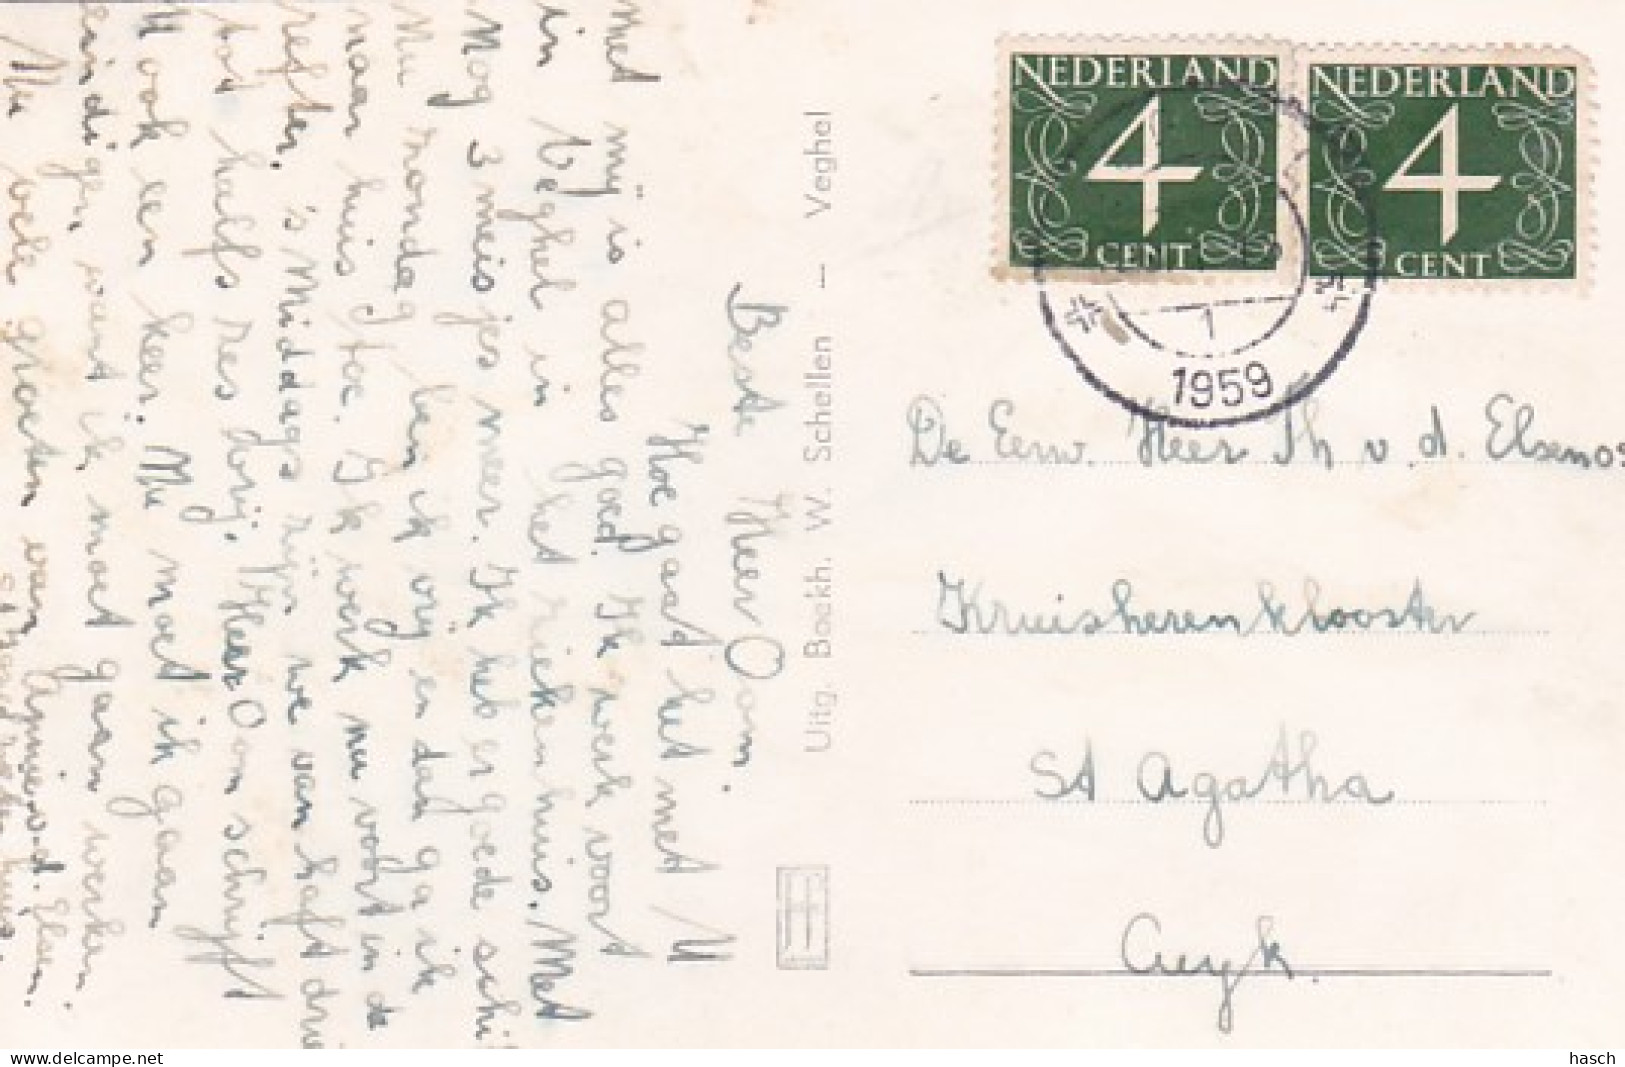 NEDERLAND
4
CENT
NEDERLAND
4
CENT
1959
De Eerw. Heer Th v. d. Elsenos
Kruisherenklooster
St Agatha
Cuyk.
Uitg. Boekh. W. Schellen — Veghel
Beste Heer Oom.
Hoe gaat het met U
met mij is alles goed. Ik werk voort
in Veghel in het ziekenhuis. Met
Nog 3 meisjes meer. Ik heb er goede schi
Nu mondag ben ik vrij en dan ga ik
naar huis toe. Ik werk nu voort in de
refter, 's Middags zijn we van haft drie
tot halfs zes vrij. Heer Oom schrijft
U ook een keer. Nu moet ik gaan
eindigen want ik moet gaan werken.
Nu vele groeten van Annie v. d. Elsen.
ziekenhuis.
hasch